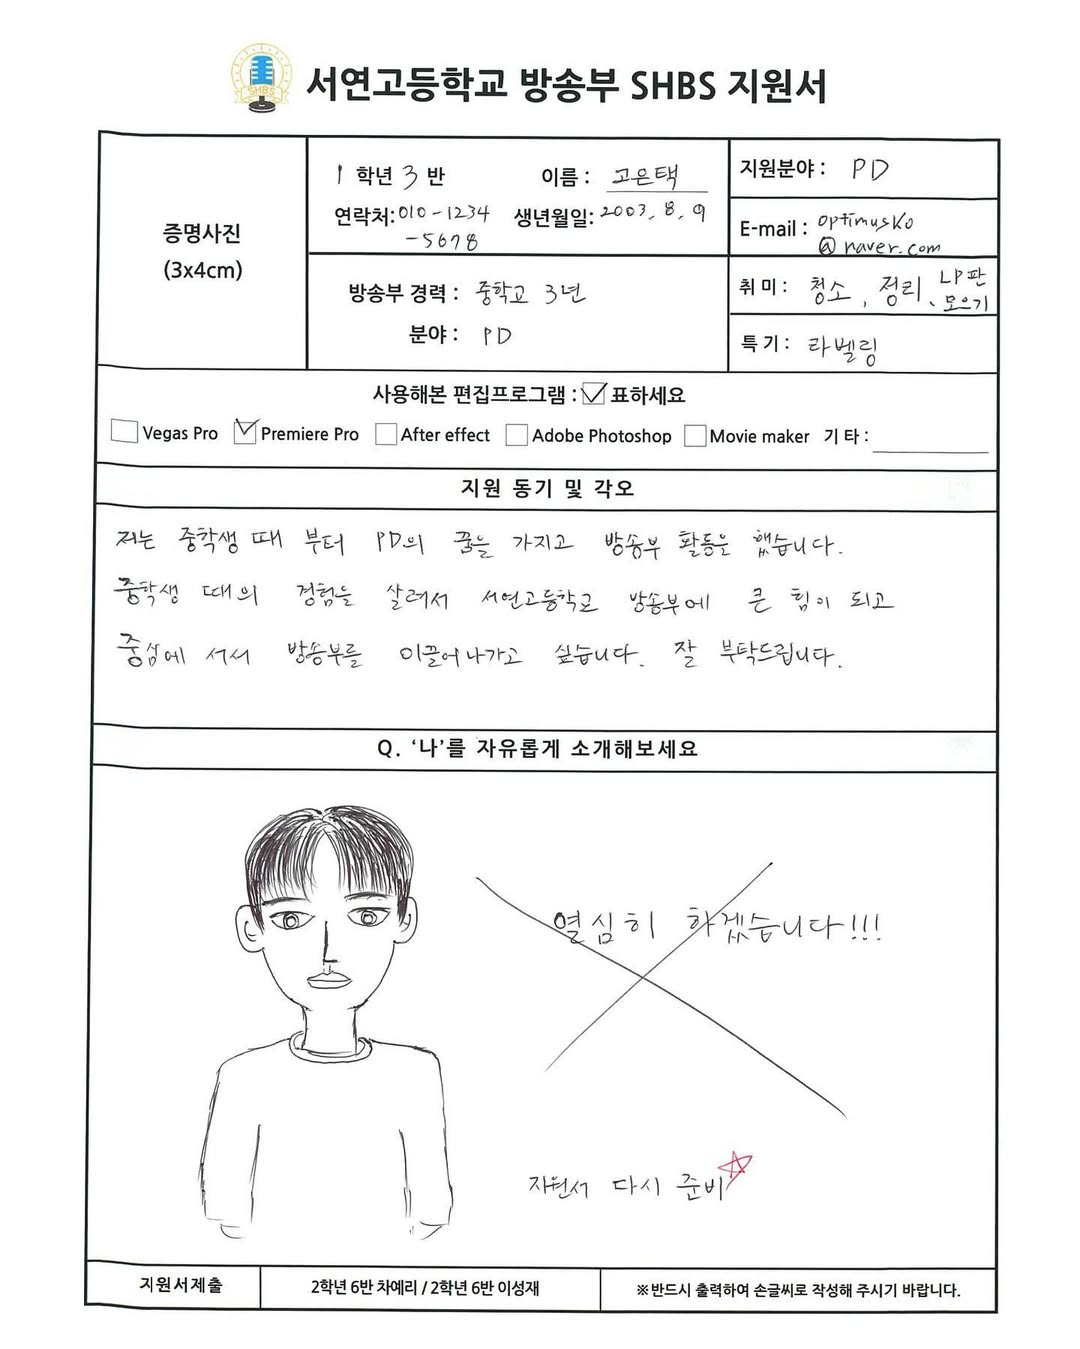 SHBS
서연고등학교 방송부 SHBS 지원서
증명사진
(3x4cm)
1 학년 3 반 이름 : 고은택
연락처: 010-1234
-5678
생년월일: 2003. 8. 9
지원분야 : PD
E-mail : optimusko
@naver.com
방송부 경력 : 중학교 3년
분야 : PD
취 미 : 청소, 정리, LP판
모으기
특 기 : 라벨링
사용해본 편집프로그램 : 표하세요
Vegas Pro Premiere Pro After effect Adobe Photoshop Movie maker 기 타 :
지원 동기 및 각오
저는 중학생 때 부터 PD의 꿈을 가지고 방송부 활동을 했습니다.
중학생 때의 경험을 살려서 서연고등학교 방송부에 큰 힘이 되고
중심에 서서 방송부를 이끌어나가고 싶습니다. 잘 부탁드립니다.
Q. ‘나’를 자유롭게 소개해보세요
열심히 하겠습니다!!!
지원서 다시 준비
지원서제출
2학년 6반 차예리 / 2학년 6반 이성재
※반드시 출력하여 손글씨로 작성해 주시기 바랍니다.